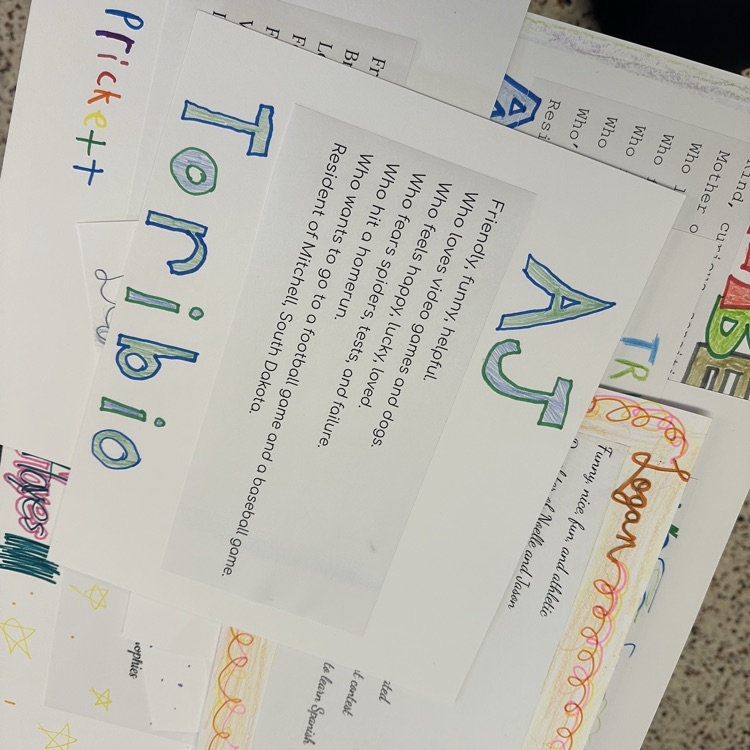 AJ
Friendly, funny, helpful.
Who loves video games and dogs.
Who feels happy, lucky, loved.
Who fears spiders, tests, and failure.
Who hit a homerun.
Who wants to go to a football game and a baseball game.
Resident of Mitchell, South Dakota.
Toribio
Prickett
Logan
Funny, nice, fun, and athletic
Noelle and Jason
to learn Spanish
contest
Hayes
Mother
Who
Who
Who
Who
TR